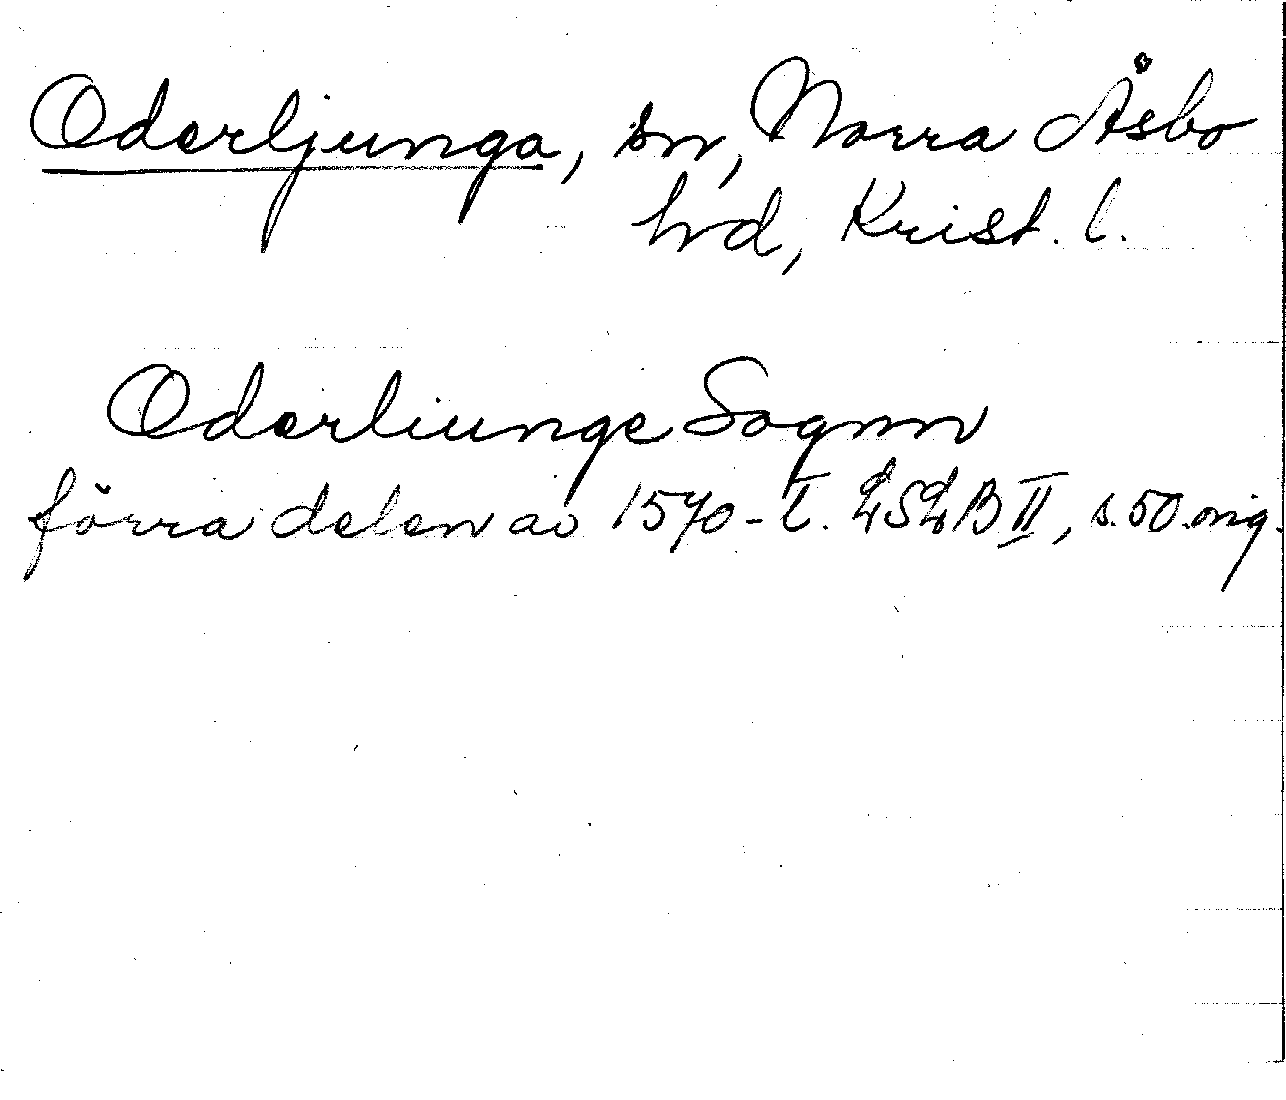 Oderljunga, sn, Norra Åsbo
hrd, Krist. l.
Oderliunge Sognn
förra delen av 1570-t. LSLB II, s. 50. orig.